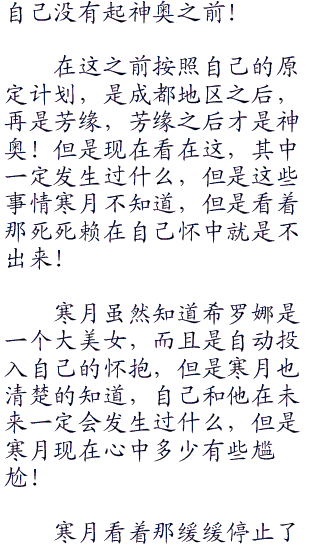 自己没有起神奥之前！
在这之前按照自己的原
定计划，是成都地区之后，
再是芳缘，芳缘之后才是神
奥！但是现在看在这，其中
一定发生过什么，但是这些
事情寒月不知道，但是看着
那死死赖在自己怀中就是不
出来！
寒月虽然知道希罗娜是
一个大美女，而且是自动投
入自己的怀抱，但是寒月也
清楚的知道，自己和他在未
来一定会发生过什么，但是
寒月现在心中多少有些尴
尬！
寒月看着那缓缓停止了